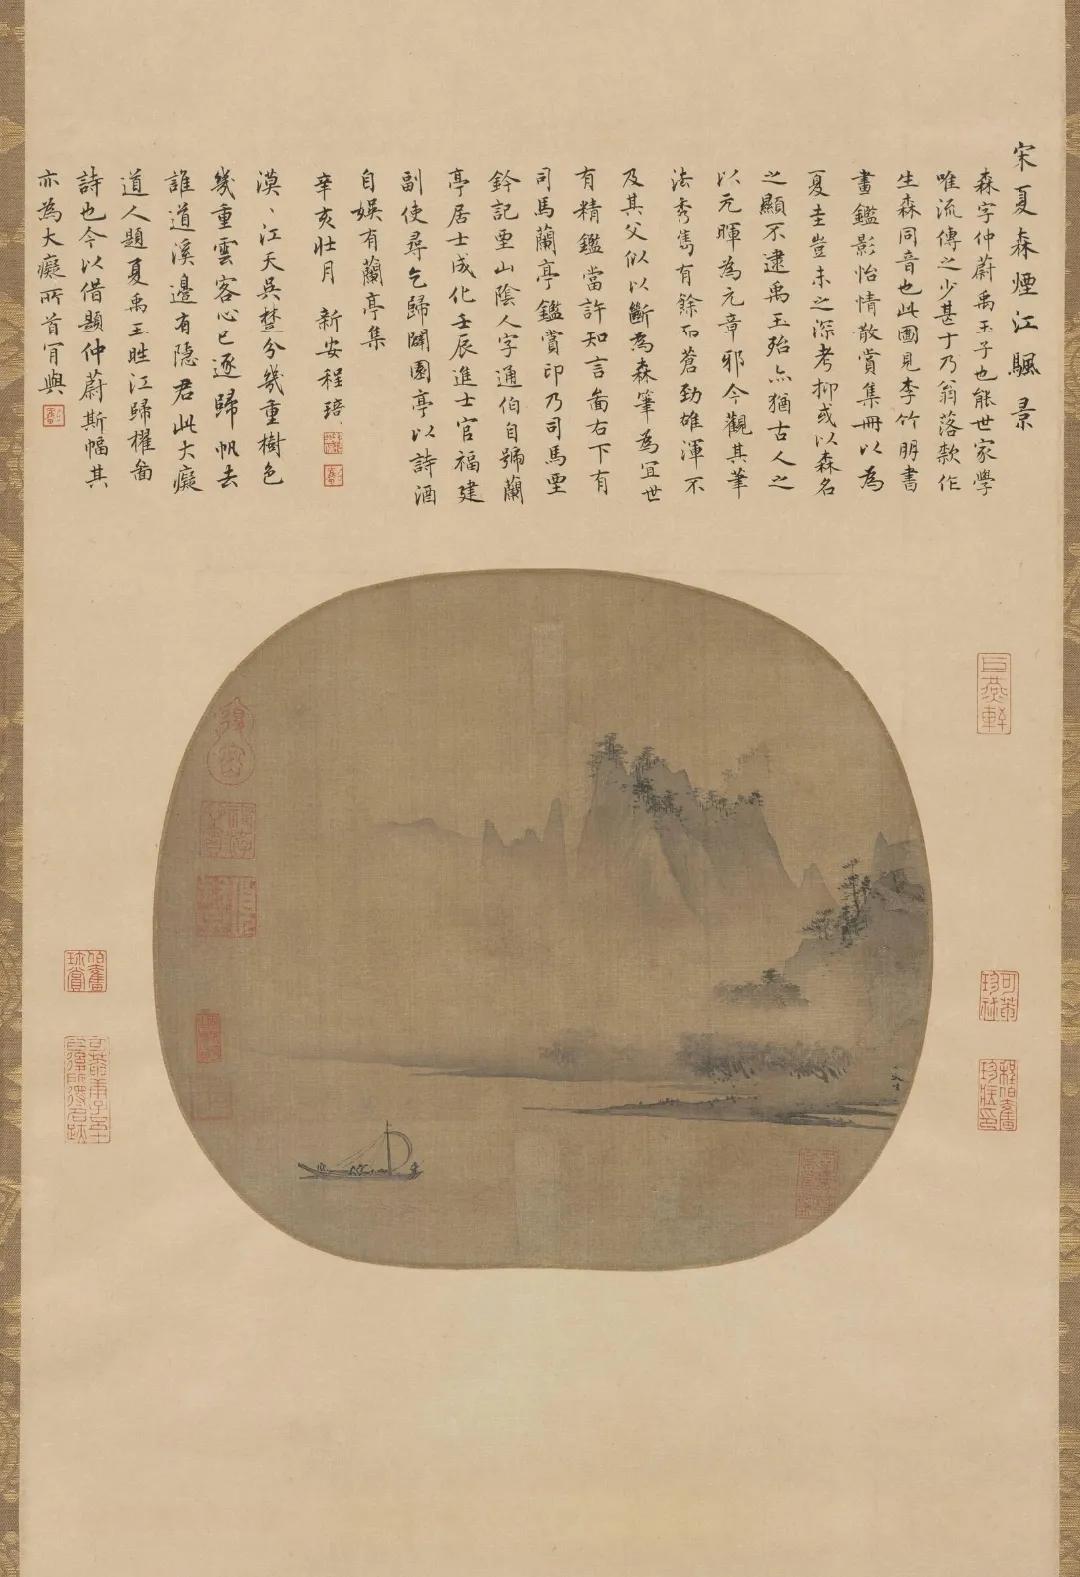 宋夏森煙江颿景
森字仲蔚禹玉子也能世家學
唯流傳之少甚于乃翁落款作
生森同音也此圖見李竹朋書
畫鑑影怡情散賞集冊以為
夏圭豈未之深考抑或以森名
之顯不逮禹玉殆亦猶古人之
以元暉為元章邪今觀其筆
法秀雋有餘而蒼勁雄渾不
及其父似以斷為森筆為宜世
有精鑑當許知言畣右下有
司馬蘭亭鑑賞印乃司馬垔
鈐記垔山陰人字通伯自號蘭
亭居士成化壬辰進士官福建
副使尋乞歸闢園亭以詩酒
自娛有蘭亭集
辛亥壯月 新安程琦
漠、江天吳楚分幾重樹色
幾重雲客心已逐歸帆去
誰道溪邊有隱君此大癡
道人題夏禹玉晴江歸櫂啚
詩也今以借題仲蔚斯幅其
亦為大癡所首肎歟
可菴珍祕
程伯奮珍藏印
伯奮珍賞